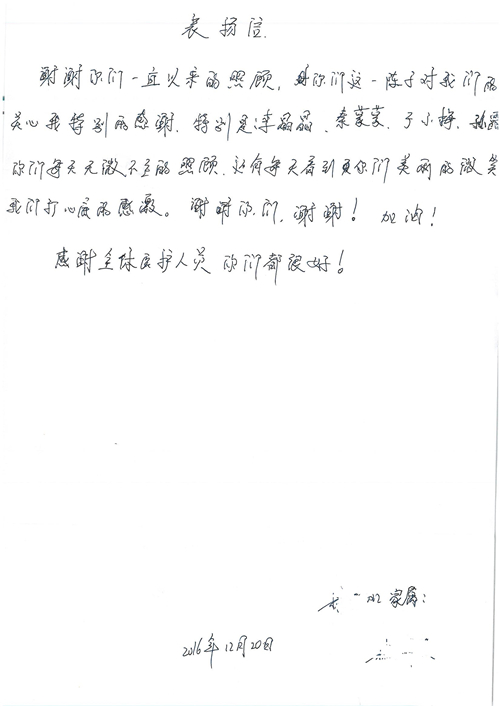 表扬信
谢谢你们一直以来的照顾，你们这一阵子对我们的
关心我特别的感谢，特别是李晶晶、秦蒙蒙、于小梅、孙
你们每天无微不至的照顾，还有每天看到见你们美丽的微笑
我们打心底的感激。谢谢你们，谢谢！加油！
感谢全体医护人员你们都很好！
家属：
2016年12月20日